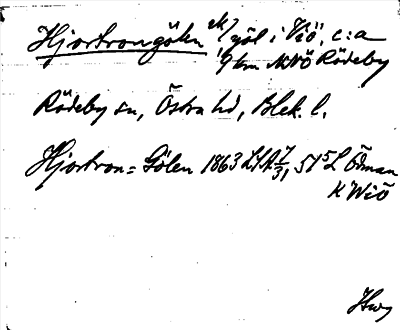 Hjortrongölen sk? göl i Viö, c:a
9 km NNÖ Rödeby
Rödeby sn, Östra hd, Blek. l.
Hjortron= Gölen 1863 LSA 7/31, 515 L Öman
K Wiö